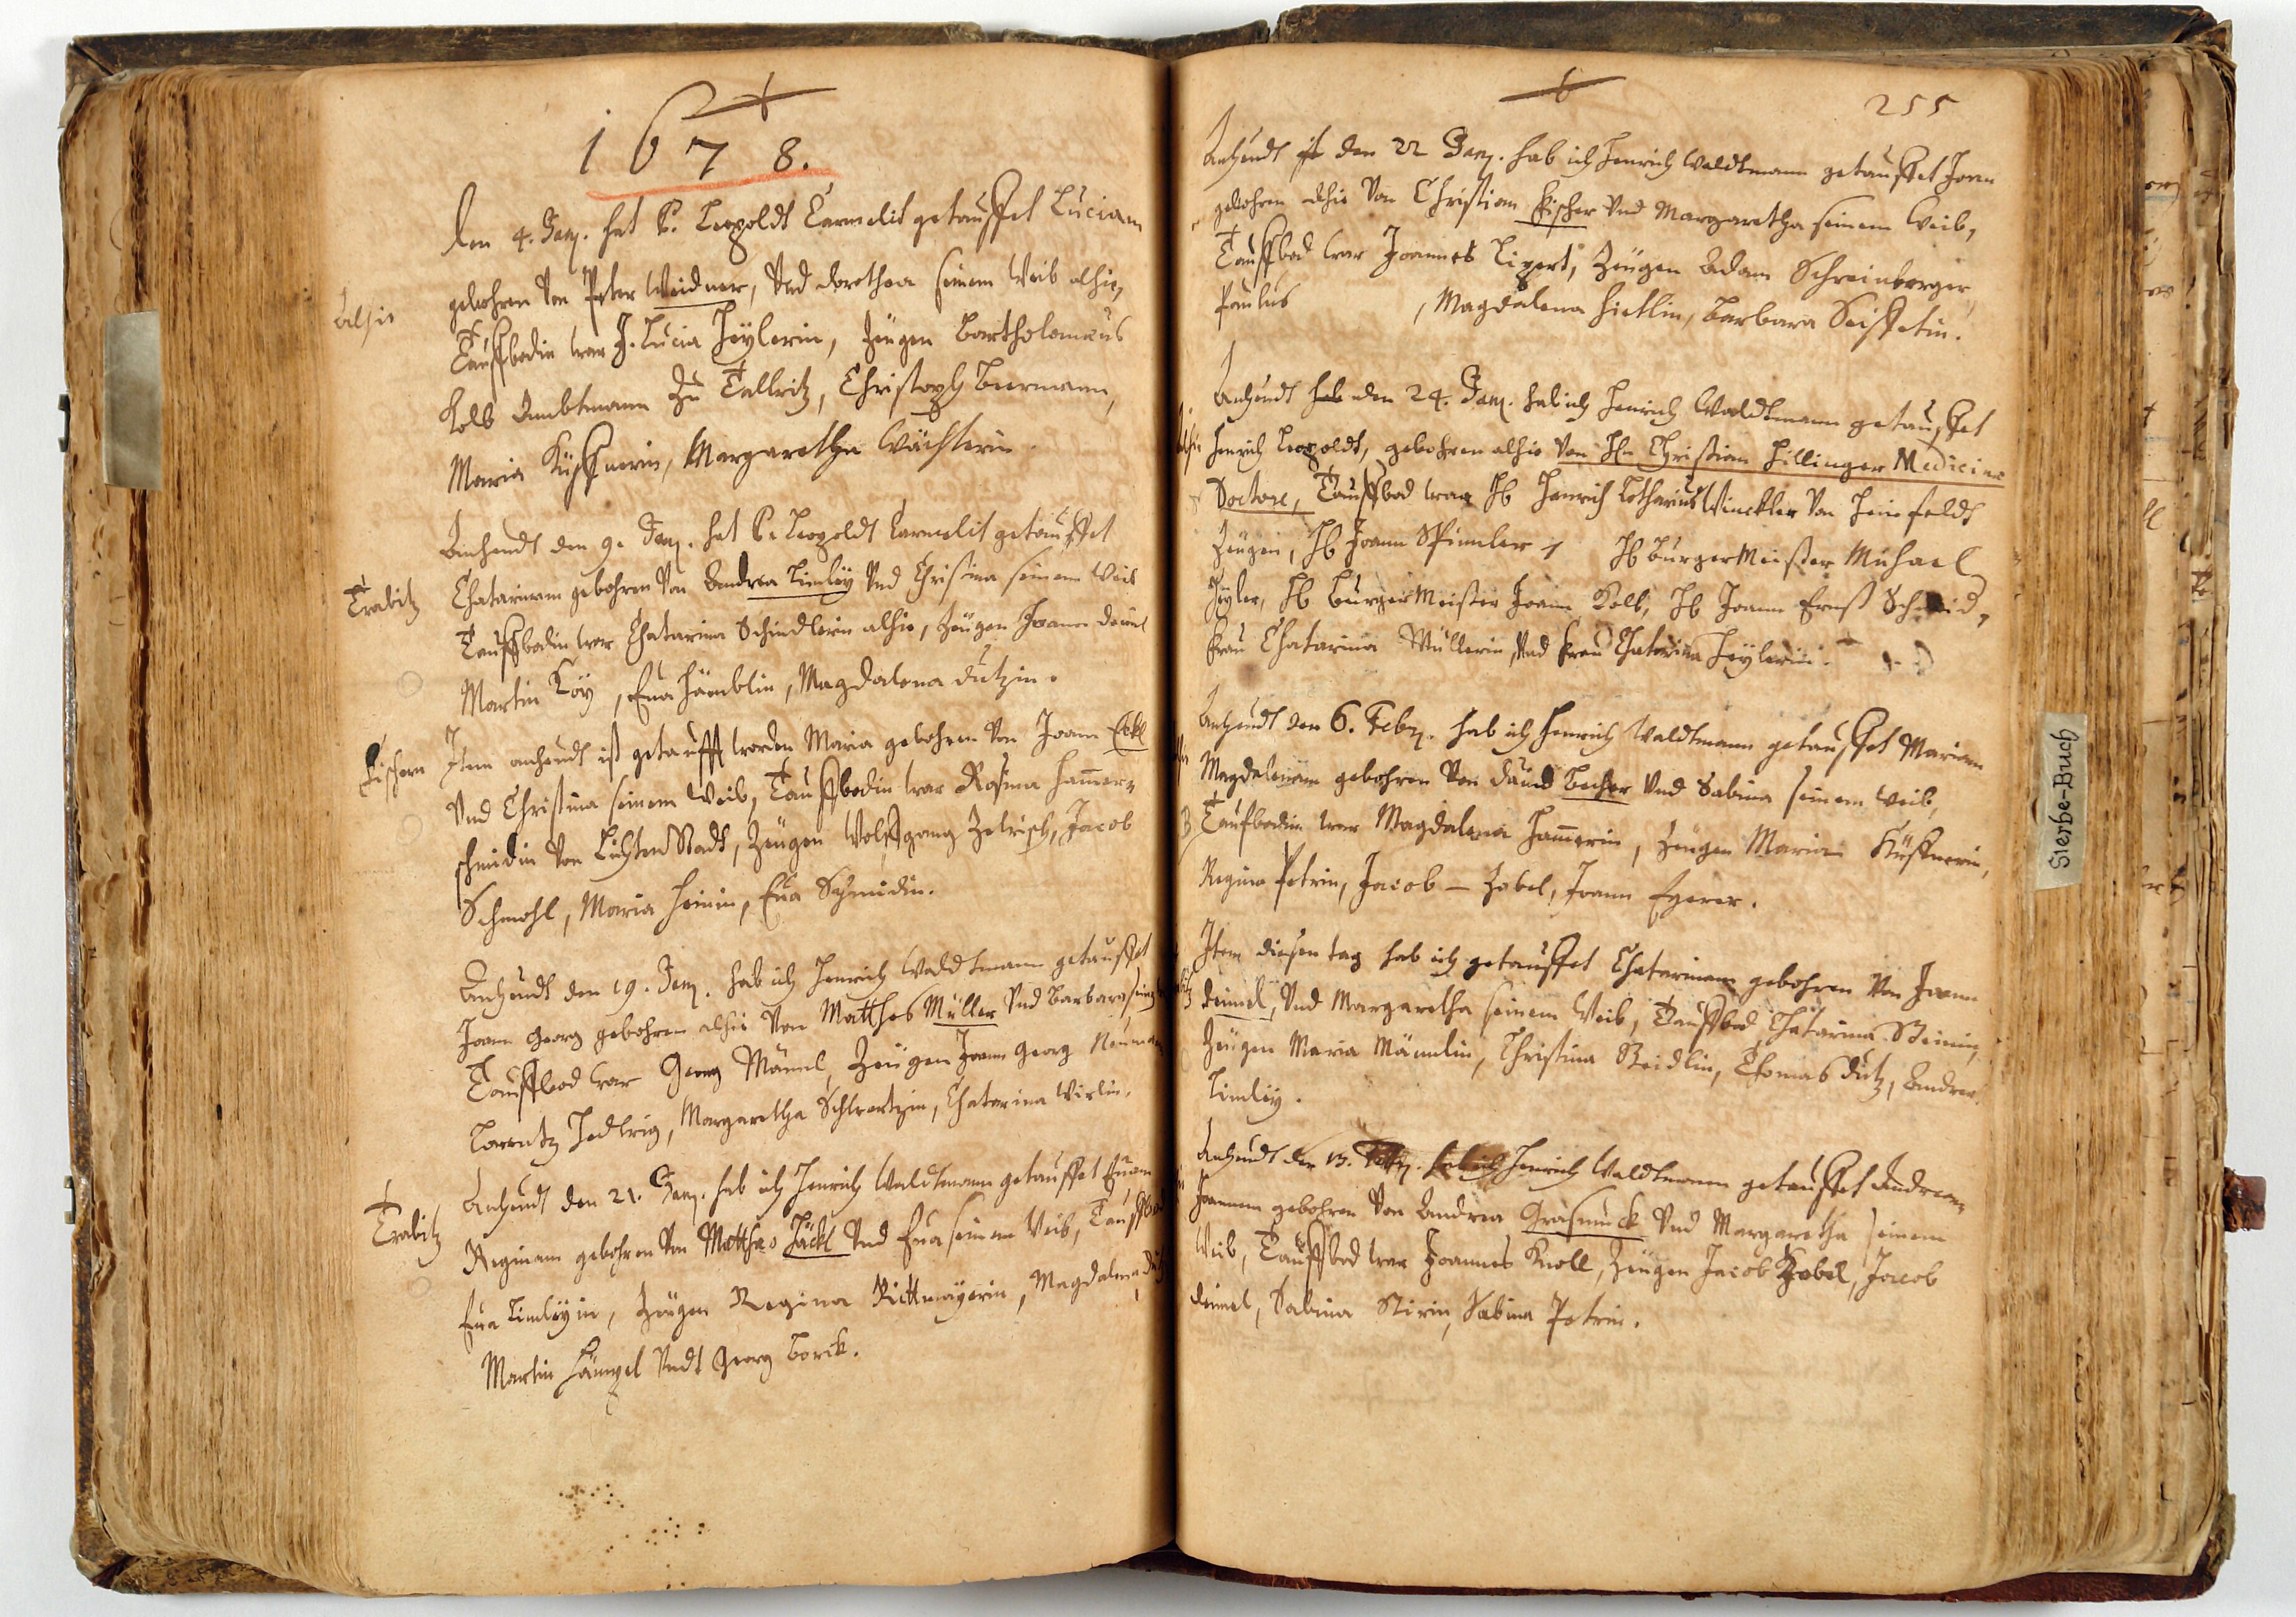 1678.
Den 4. Janȝ. hat P. Leopoldt Carmelit getauffet Luciam
alhie
gebohren von Peter Weidner, vnd Dorothea seinem Weib alhie,
Tauffbodin war J. Lucia Heÿlerin, Zeügen Bartholomæus
Kolb Ambtmann zu Tallwitz, Christoph Beermann,
Maria Küffnerin, Margaretha Wächterin.
Anheudt den 9. Janȝ. hat P. Leopoldt Carmelit getauffet
Trabitz
Chatarinam gebohren von Andrea Limlöÿ vnd Christina seinem Weib
Tauffbodin war Chatarina Schindlerin alhie, Zeügen Joann Deiml
Martin Löÿ, Eua Hämblin, Magdalena Dutzin.
Fischern
Item anheudt ist getaufft worden Maria gebohren von Joann Eckl
vnd Christina seinem Weib, Tauffbodin war Rosina Ham̄er-
schmidin von Lichtenstadt, Zeügen Wolffgang Zetwisch, Jacob
Schmohl, Maria Heinin, Eua Schmidin.
Anheudt den 19. Janȝ. hab ich Henrich Waldtmann getauffet
Joann Georg gebohren alhie von Matthes Müller vnd Barbara seinem
Tauffbod war Georg Männl, Zeügen Joann Georg Neüman
Lorentz Hedwig, Margaretha Schwartzin, Chatarina Wirlin.
Trabitz
Anheudt den 21. Janȝ. hab ich Henrich Waldtmann getauffet Euam
Reginam gebohren von Matthæo Häckl vnd Eua seinem Weib, Tauffbod
Eua Limlöÿin, Zeügen Regina Rittmaÿerin, Magdalena
Martin Hämpel vndt Georg Borck.
255
Anheudt den 22 Janȝ. hab ich Henrich Waldtmann getauffet Joann
gebohren alhie von Christian Fischer vnd Margaretha seinem Weib,
Tauffbod war Joannes Lipert, Zeügen Adam Schreinberger
Paulus , Magdalena Hietlin, Barbara Seiffetin.
Anheudt hab den 24. Janȝ. hab ich Henrich Waldtmann getauffet
alhie
Henrich Leopoldt, gebohren alhie von Hn Christian Hillinger Medicinæ
Doctore, Tauffbod war H. Henrich Lotharius Winckler von Heinfeldt
Zeügen, H. Joann Spindler, H. Burgermeister Michael
Heÿler, H. Burgermeister Joann Kolb, H. Joann Ernst Schmid,
Frau Chatarina Müllerin, vnd Frau Chatarina Heÿlerin.
Anheudt den 6. Febȝ. hab ich Henrich Waldtmann getauffet Mariam
Magdalenam gebohren von Dauid Becher vnd Sabina seinem Weib,
Taufbodin war Magdalena Ham̄erin, Zeugen Maria Küffnerin,
Regina Petrin, Jacob – Zobel, Joann Egerer.
Item diesen tag hab ich getauffet Chatarinam gebohren von Joann
Deimel, vnd Margaretha seinem Weib, Tauffbod Chatarina Steinin,
Zeügen Maria Männlin, Christina Steidlin, Thomas Dutz, Andrea
Limlöÿ.
Anheudt den 13. Febȝ. hab ich Henrich Waldtmann getauffet Andream
Joannem gebohren von Andrea Grasmuck vnd Margaretha seinem
Weib, Tauffbod war Joannes Knoll, Zeügen Jacob Zobel, Jacob
Deimel, Sabina Stirin, Sabina Petrin.
Sterbe-Buch